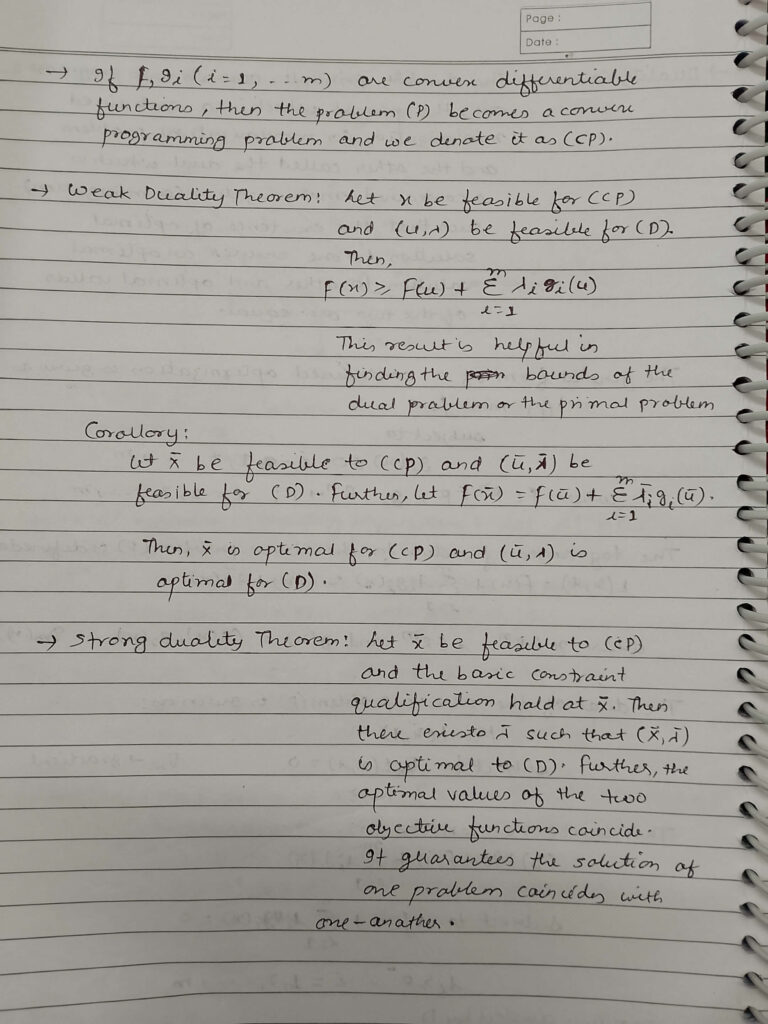 Page :
Date :
→ If f, gi (i=1, ... m) are convex differentiable
functions, then the problem (P) becomes a convex
programming problem and we denote it as (CP).
→ Weak Duality Theorem: Let x be feasible for (CP)
and (u,λ) be feasible for (D).
Then,
f(x) ≥ f(u) + Σ λi gi(u)
m
i=1
This result is helpful in
finding the bounds of the
dual problem or the primal problem
Corollory:
Let x̄ be feasible to (CP) and (ū, λ̄) be
feasible for (D). Further, let f(x̄) = f(ū) + Σ λ̄i gi(ū).
m
i=1
Then, x̄ is optimal for (CP) and (ū, λ) is
optimal for (D).
→ Strong duality Theorem: Let x̄ be feasible to (CP)
and the basic constraint
qualification hold at x̄. Then
there exists λ̄ such that (x̄, λ̄)
is optimal to (D). Further, the
optimal values of the two
objective functions coincide.
It guarantees the solution of
one problem coincides with
one-another.